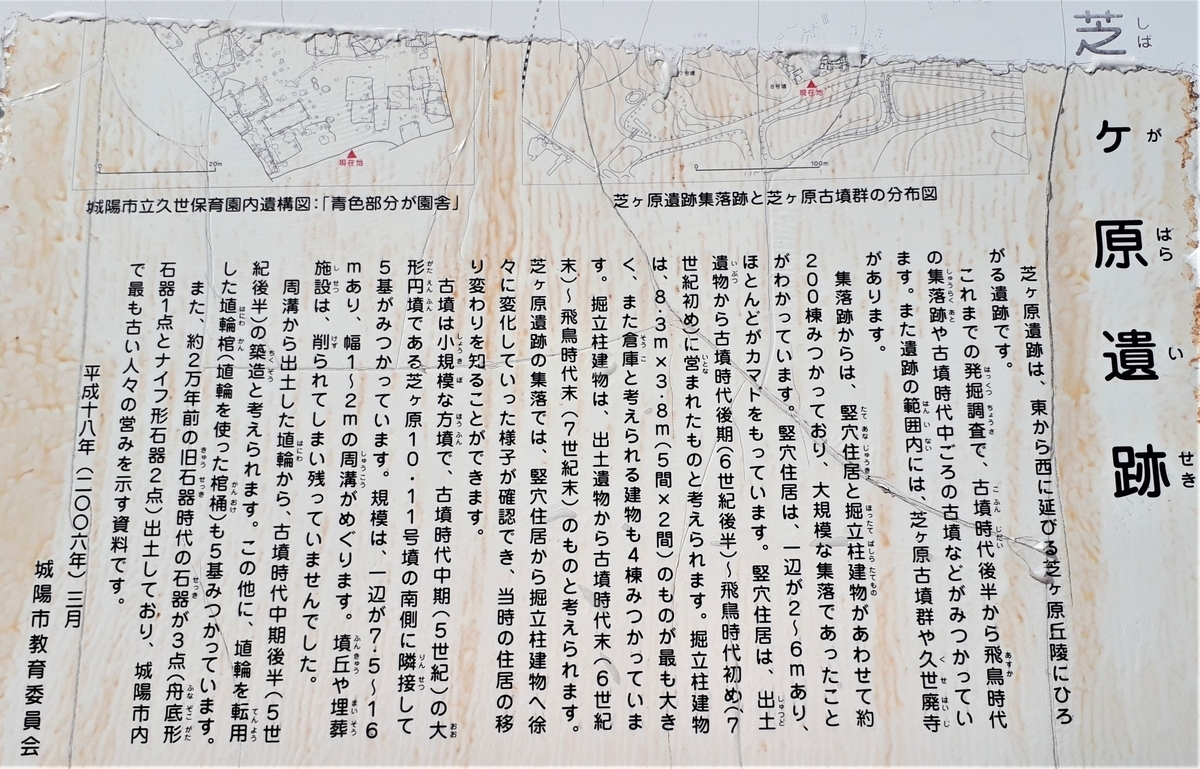 芝ヶ原遺跡
しば
が
はら
い
せき
芝ヶ原遺跡は、東から西に延びる芝ヶ原丘陵にひろ
がる遺跡です。
これまでの発掘調査で、古墳時代後半から飛鳥時代
の集落跡や古墳時代中ごろの古墳などがみつかってい
ます。また遺跡の範囲内には、芝ヶ原古墳群や久世廃寺
があります。
集落跡からは、竪穴住居と掘立柱建物があわせて約
200棟みつかっており、大規模な集落であったこと
がわかっています。竪穴住居は、一辺が2〜6mあり、
ほとんどがカマドをもっています。竪穴住居は、出土
遺物から古墳時代後期(6世紀後半)〜飛鳥時代初め(7
世紀初め)に営まれたものと考えられます。掘立柱建物
は、8・3m×3・8m(5間×2間)のものが最も大き
く、また倉庫と考えられる建物も4棟みつかっていま
す。掘立柱建物は、出土遺物から古墳時代末(6世紀
末)〜飛鳥時代末(7世紀末)のものと考えられます。
芝ヶ原遺跡の集落では、竪穴住居から掘立柱建物へ徐
々に変化していった様子が確認でき、当時の住居の移
り変わりを知ることができます。
古墳は小規模な方墳で、古墳時代中期(5世紀)の大
形円墳である芝ヶ原10・11号墳の南側に隣接して
5基がみつかっています。規模は、一辺が7・5〜16
mあり、幅1〜2mの周溝がめぐります。墳丘や埋葬
施設は、削られてしまい残っていませんでした。
周溝から出土した埴輪から、古墳時代中期後半(5世
紀後半)の築造と考えられます。この他に、埴輪を転用
した埴輪棺(埴輪を使った棺桶)も5基みつかっています。
また、約2万年前の旧石器時代の石器が3点(舟底形
石器1点とナイフ形石器2点)出土しており、城陽市内
で最も古い人々の営みを示す資料です。
平成十八年(二〇〇六年)三月
城陽市教育委員会
8号墳
現在地
0 100m
芝ヶ原遺跡集落跡と芝ヶ原古墳群の分布図
現在地
0 20m
城陽市立久世保育園内遺構図:「青色部分が園舎」